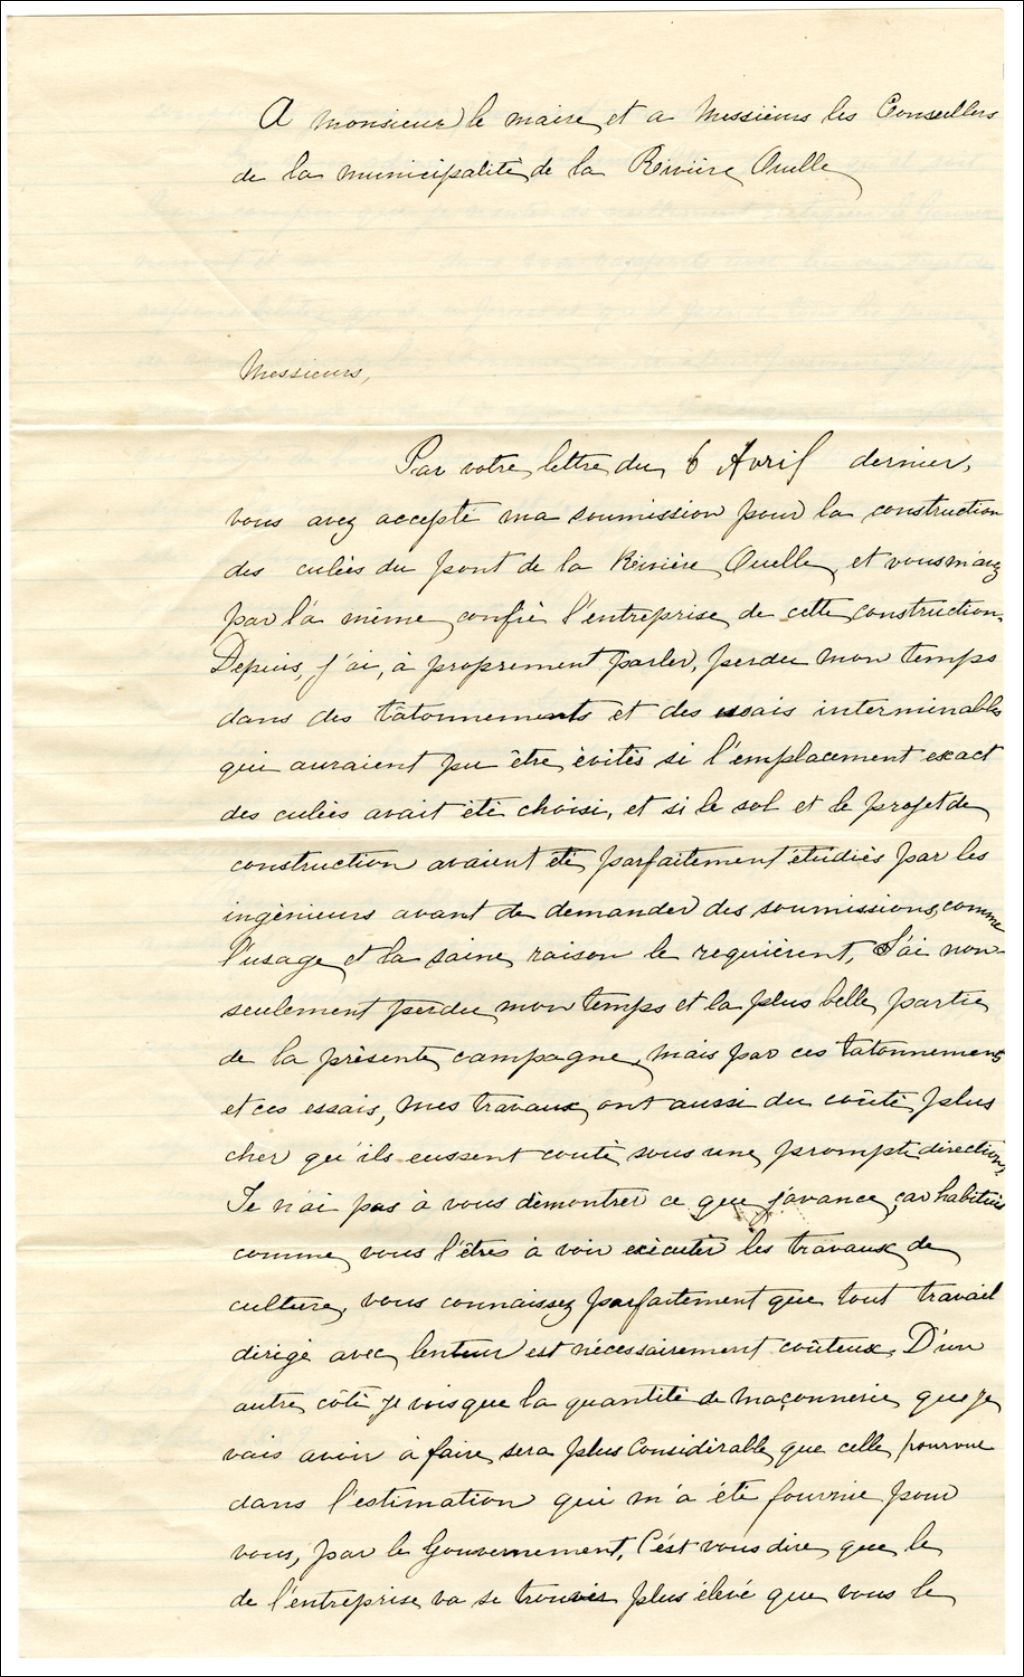 A monsieur le maire et a Messieurs les Conseillers
de la municipalité de la Rivière Ouelle
Messieurs,
Par votre lettre du 6 Avril dernier,
vous avez accepté ma soumission pour la construction
des culées du pont de la Rivière Ouelle, et vous m'avez
par là même confié l'entreprise de cette construction.
Depuis, j'ai, à proprement parler, perdu mon temps
dans des tâtonnements et des essais interminables
qui auraient pu être évités si l'emplacement exact
des culées avait été choisi, et si le sol et le projet de
construction avaient été parfaitement étudiés par les
ingénieurs avant de demander des soumissions, comme
l'usage et la saine raison le requièrent, J'ai non
seulement perdu mon temps et la plus belle partie
de la présente campagne, mais par ces tatonnements
et ces essais, mes travaux ont aussi du coûté plus
cher qu'ils eussent couté sous une prompte direction,
Je n'ai pas à vous démontrer ce que j'avance, car habitués
comme vous l'êtes à voir exécuter les travaux de
culture, vous connaissez parfaitement que tout travail
dirigé avec lenteur est nécessairement coûteux, D'un
autre côté je vois que la quantité de maçonnerie que je
vais avoir à faire sera plus Considérable que celle pourvue
dans l'estimation qui m'a été fournie pour
vous, par le Gouvernement, C'est vous dire que le
de l'entreprise va se trouver plus élevé que vous le